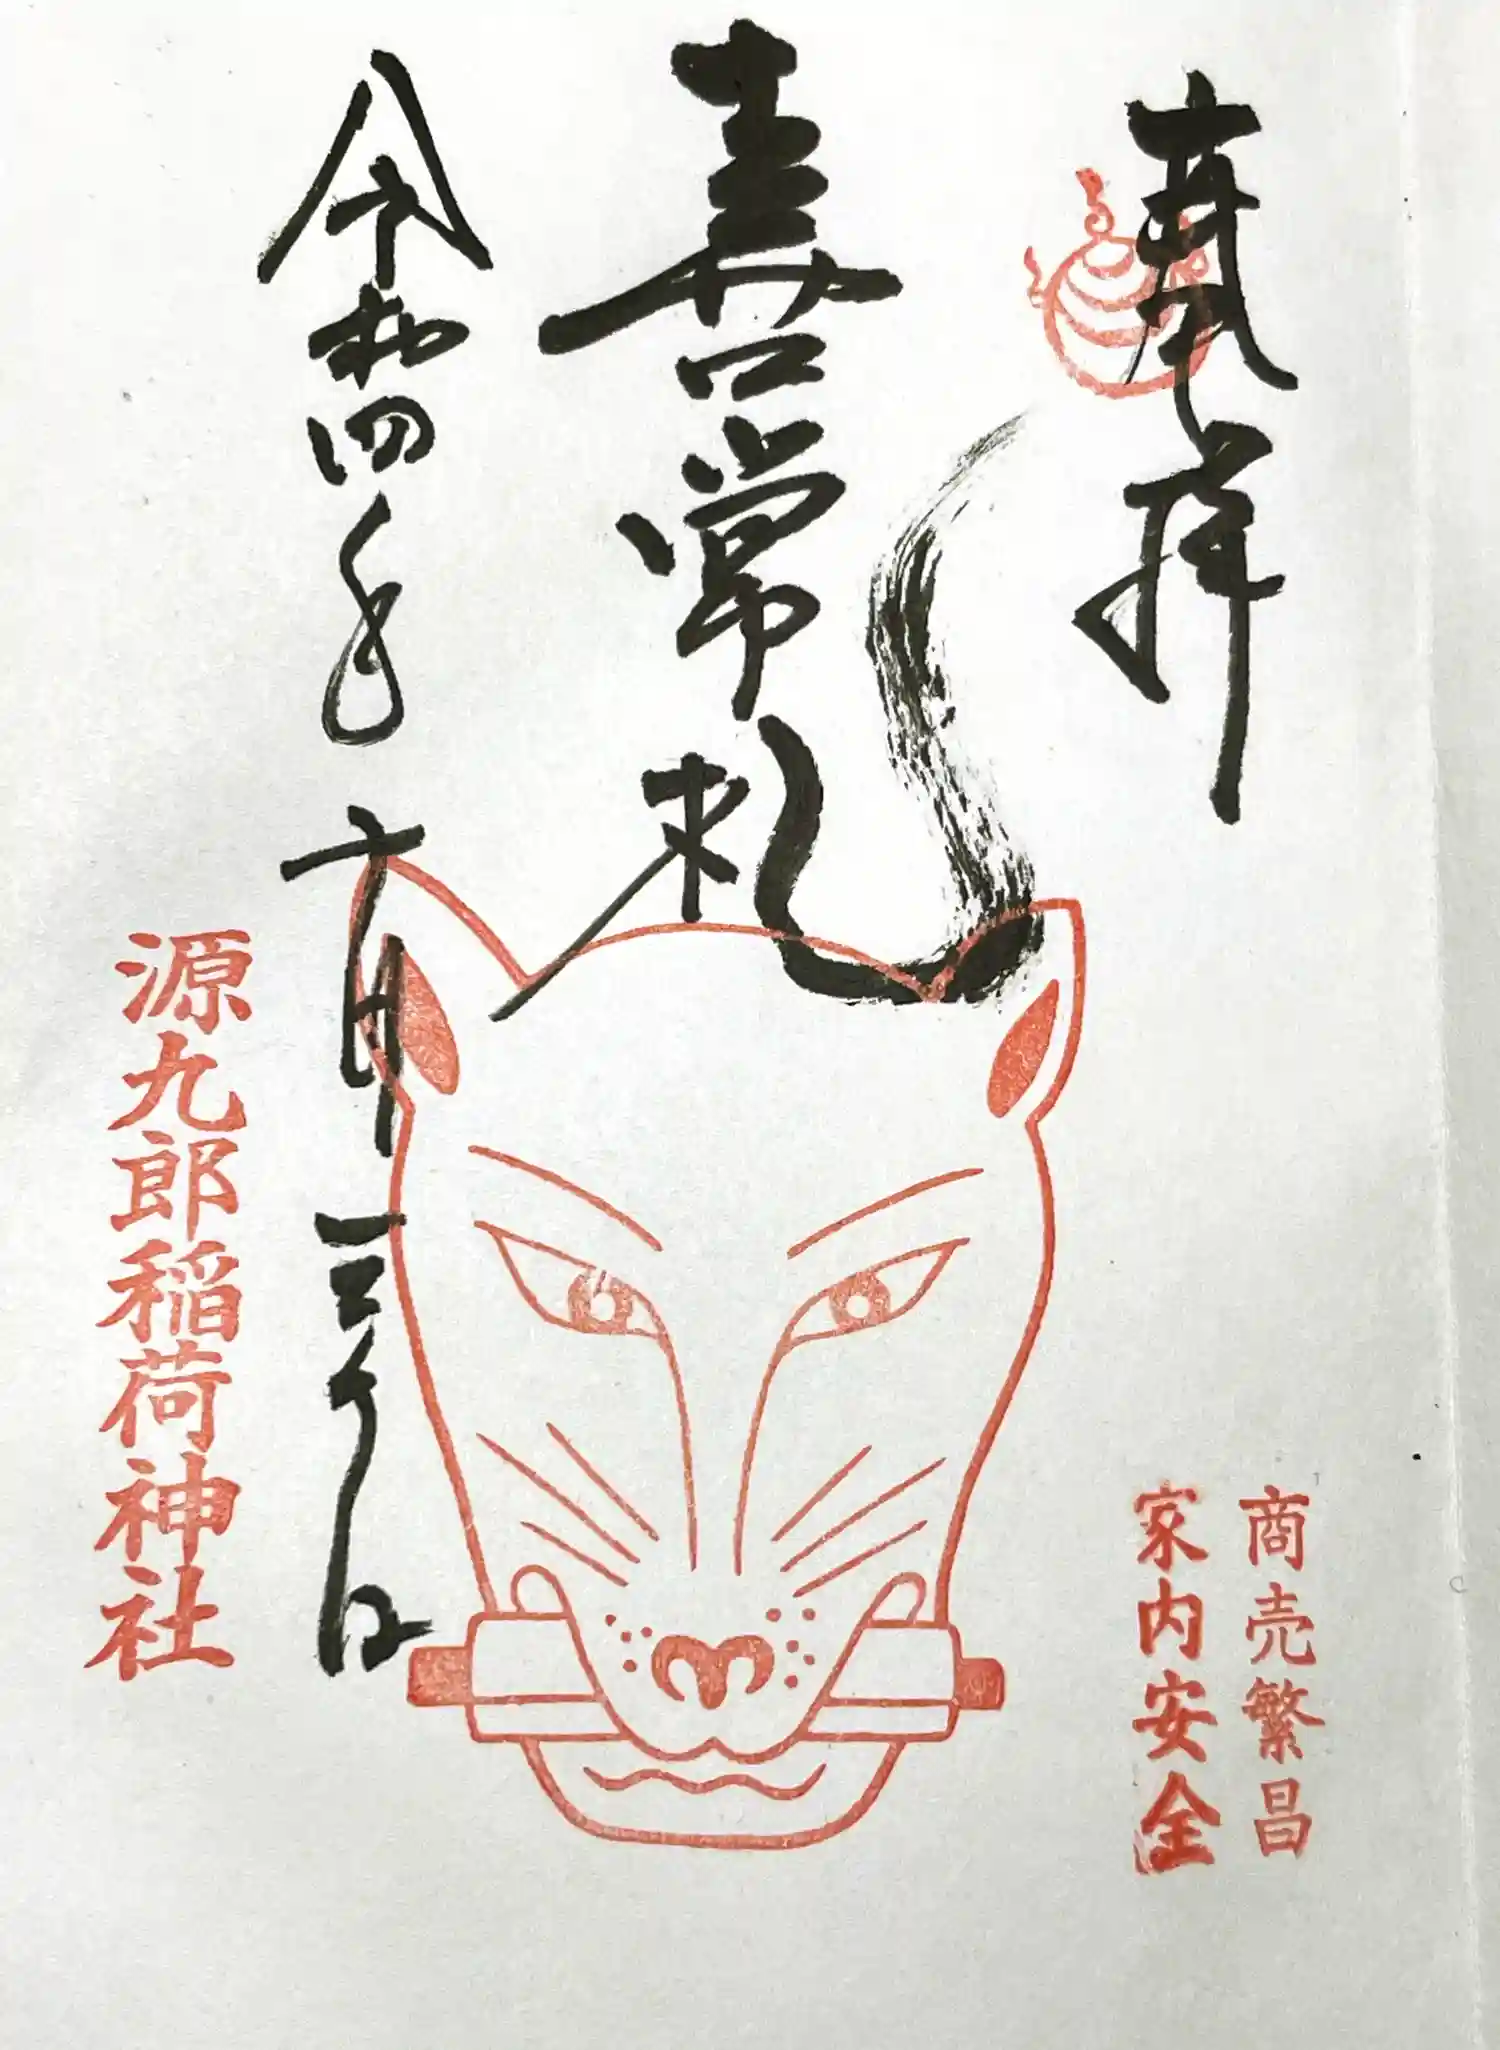 奉拝
商売繁昌
家内安全
喜常札
令和四年
源九郎稲荷神社